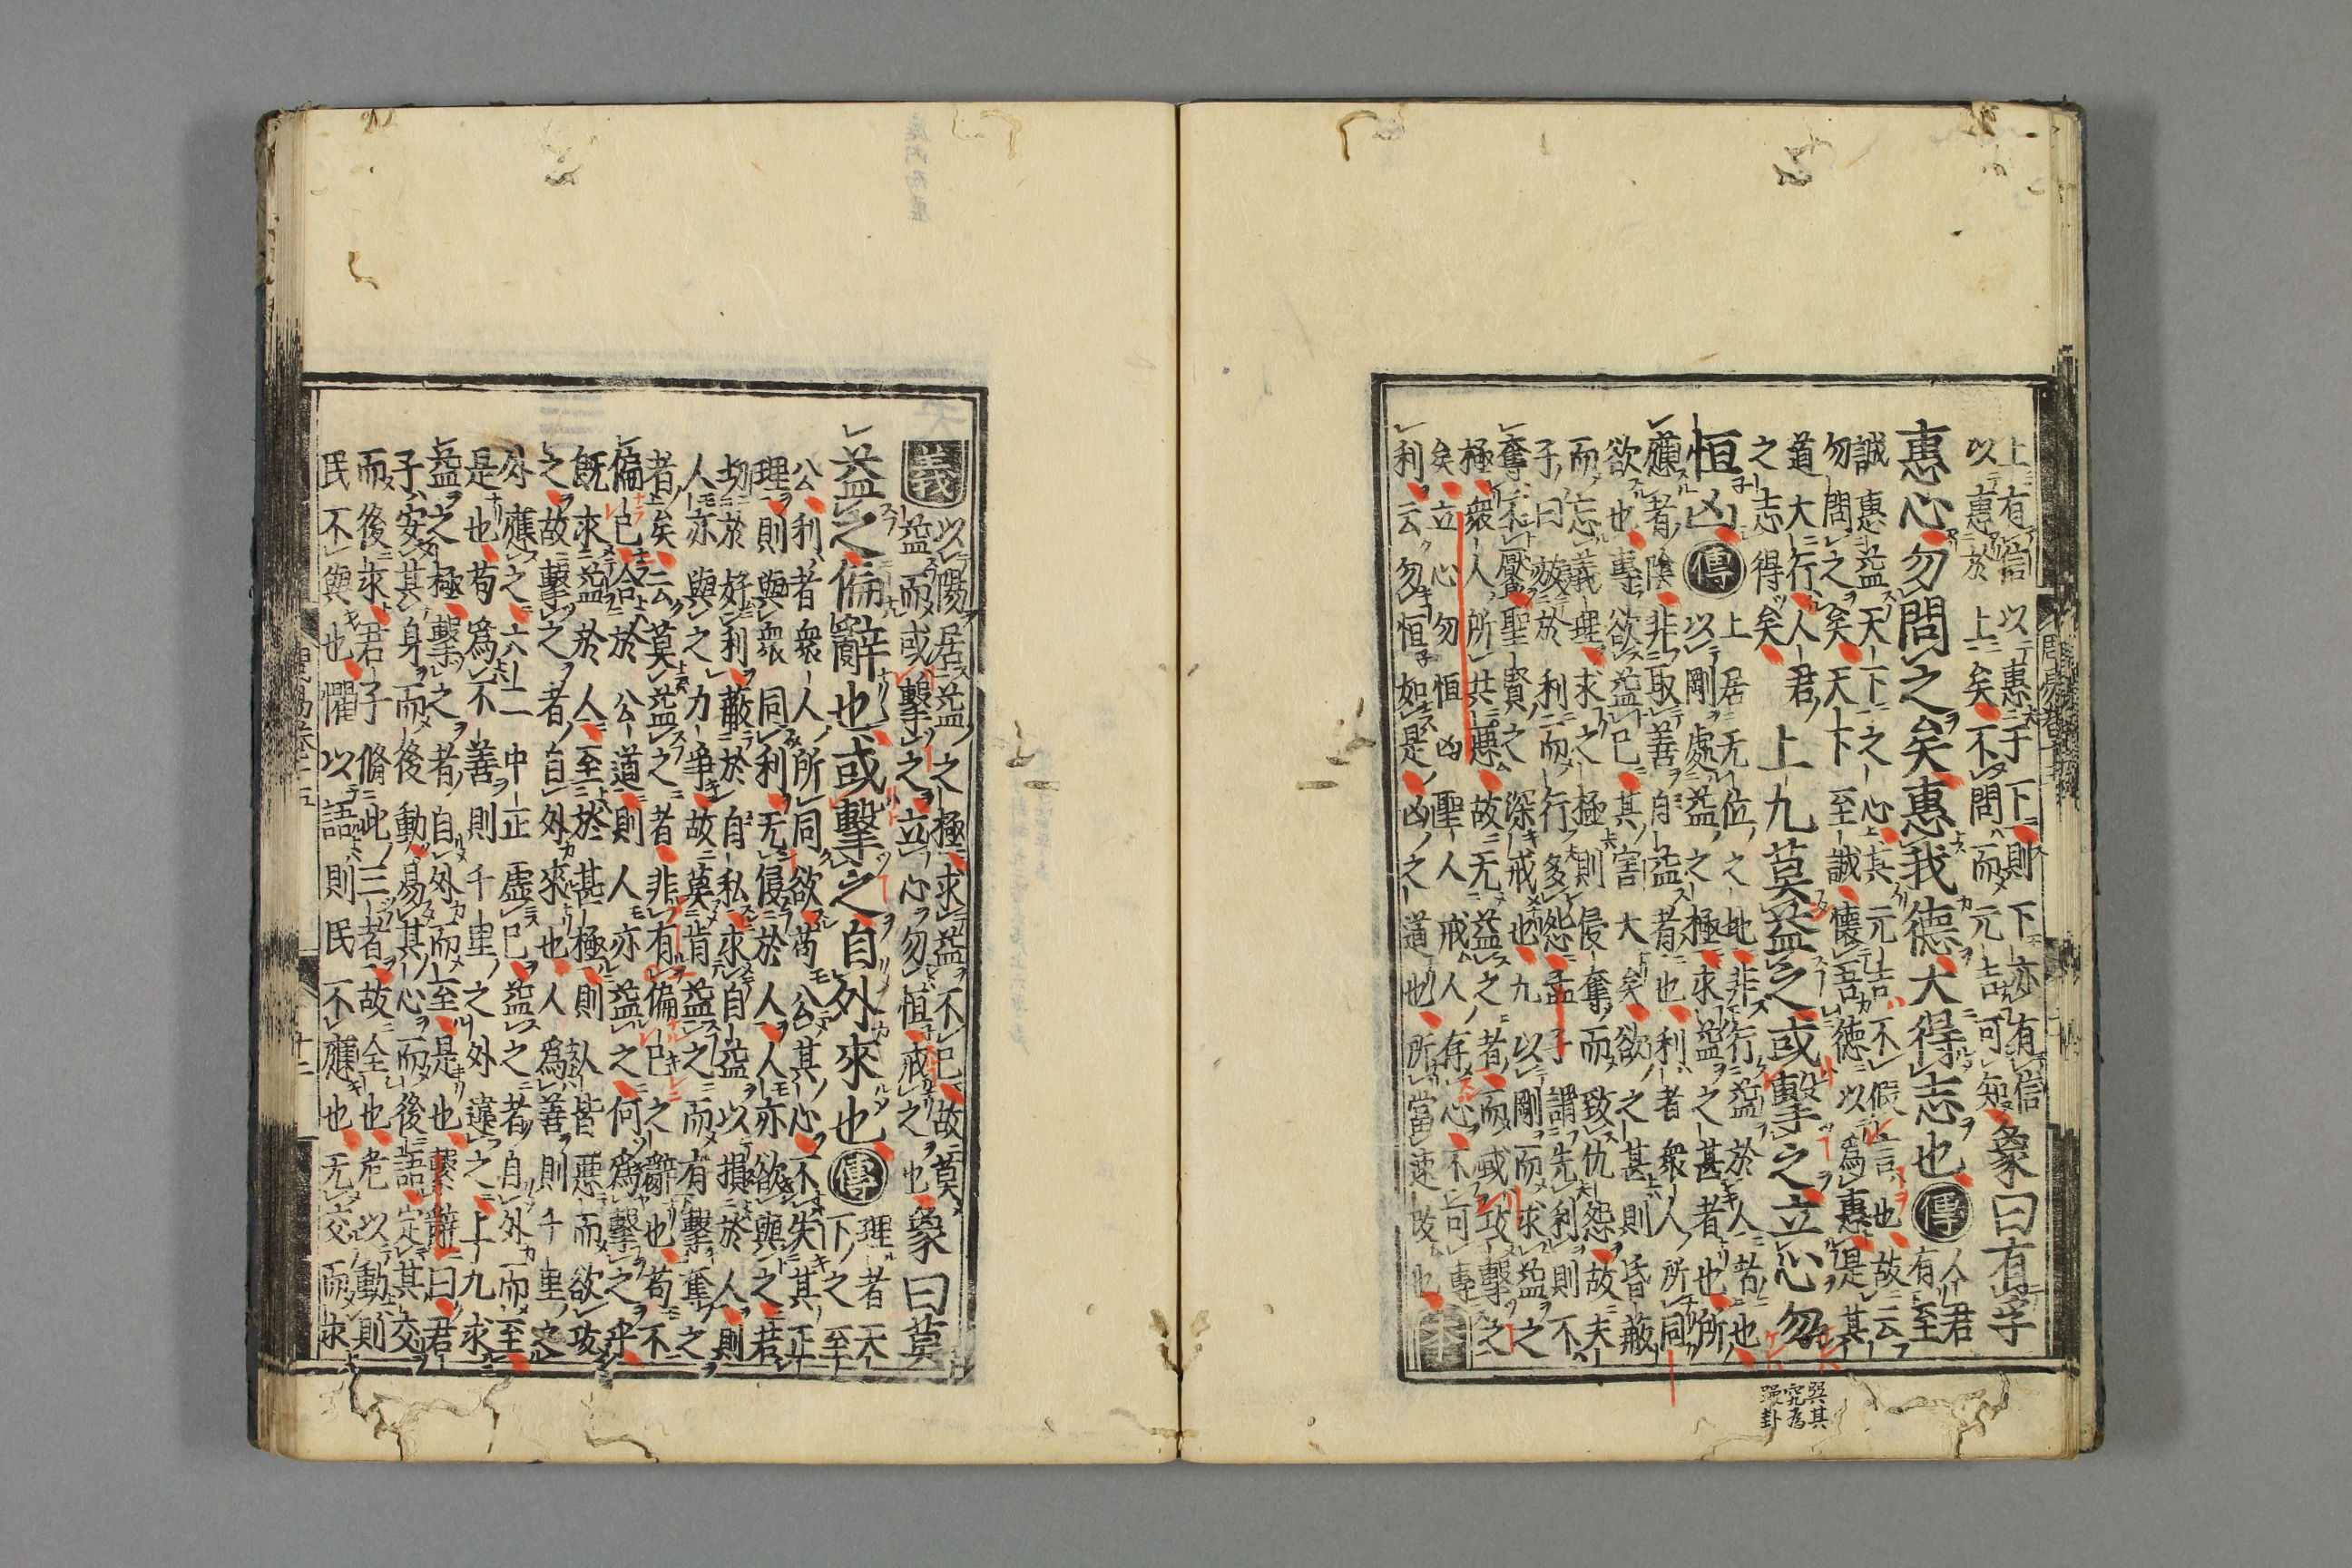 上有信以惠于下則下亦有信
以惠於上矣不問而元吉可知
象曰有孚
惠心勿問之矣惠我德大得志也傳
人君
有至
誠惠益天下之心其元吉不假言也故云
勿問之矣天下至誠懷吾德以爲惠是其
道大行人君
之志得矣
上九莫益之或擊之立心勿
恒凶傳
上居无位之地非行益於人者也
以剛處益之極求益之甚者也所
應者陰非取善自益者也利者衆人所同
欲也專欲益己其害大矣欲之甚則昏蔽
而忘義理求之極則侵奪而致仇怨故夫
子曰放於利而行多怨孟子謂先利則不
奪不厭聖賢之深戒也九以剛而求益之
極衆人所共惡故无益之者而或攻擊之
矣立心勿恒凶聖人戒人存心不可專
利云勿恒如是凶之道也所當速改也
本
巽其
究爲
躁卦
義
以陽居益之極求益不已故莫
益而或擊之立心勿恒戒之也
象曰莫
益之偏辭也或擊之自外來也傳
理者天
下之至
公利者衆人所同欲苟公其心不失其正
理則與衆同利无侵於人人亦欲與之若
切於好利蔽於自私求自益以損於人則
人亦與之力爭故莫肯益之而有擊奪之
者矣云莫益之者非有偏己之辭也苟不
偏己合於公道則人亦益之何爲擊之乎
既求益於人至於甚極則人皆惡而欲攻
之故擊之者自外來也人爲善則千里之
外應之六二中正虛己益之者自外而至
是也苟爲不善則千里之外違之上九求
益之極擊之者自外而至是也繫辭曰君
子安其身而後動易其心而後語定其交
而後求君子脩此三者故全也危以動則
民不與也懼以語則民不應也无交而求